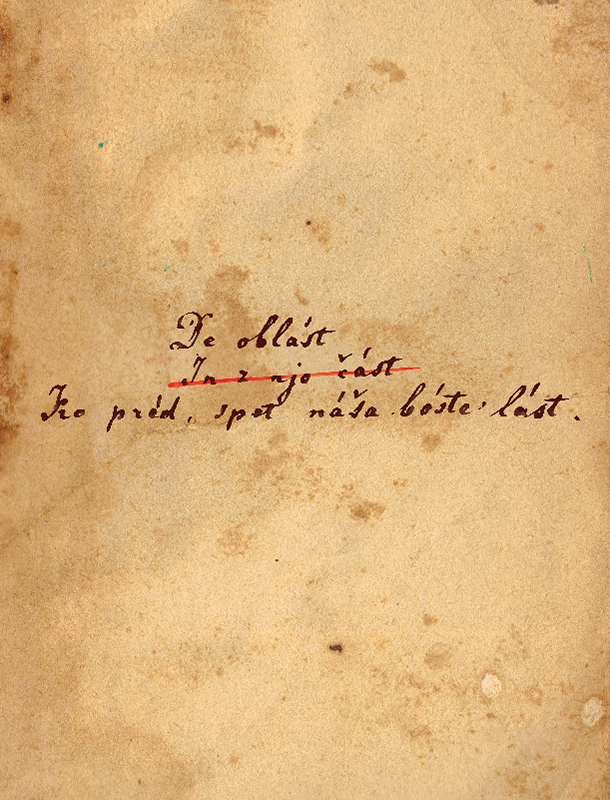 De oblást
In z njo část
Ko préd, spet náša bóste lást.